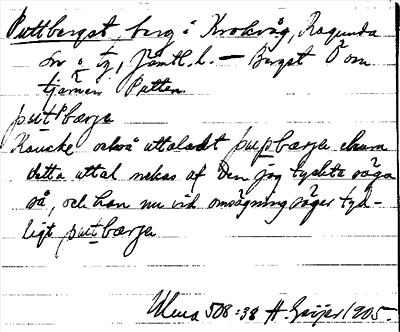 Puttberget, berg i Krokvåg, Ragunda
sn o tg, Jämtl. l. — Berget Ö om
tjärnen Putten.
put bærjə
Kanske också uttaladt pupbærja ehuru
detta uttal nekas af den jag tyckte säga
så, och han nu vid omsägning säger tyd-
ligt putbærja
508:38 H. Geijer 1905.